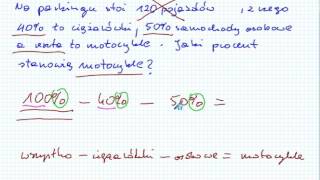 Na parkingu stoi 120 pojazdów, z czego
40% to ciężarówki, 50% samochody osobowe
a reszta to motocykle. Jaki procent
stanowią motocykle?
100% - 40% - 50% =
wszystko - ciężarówki - osobowe = motocykle